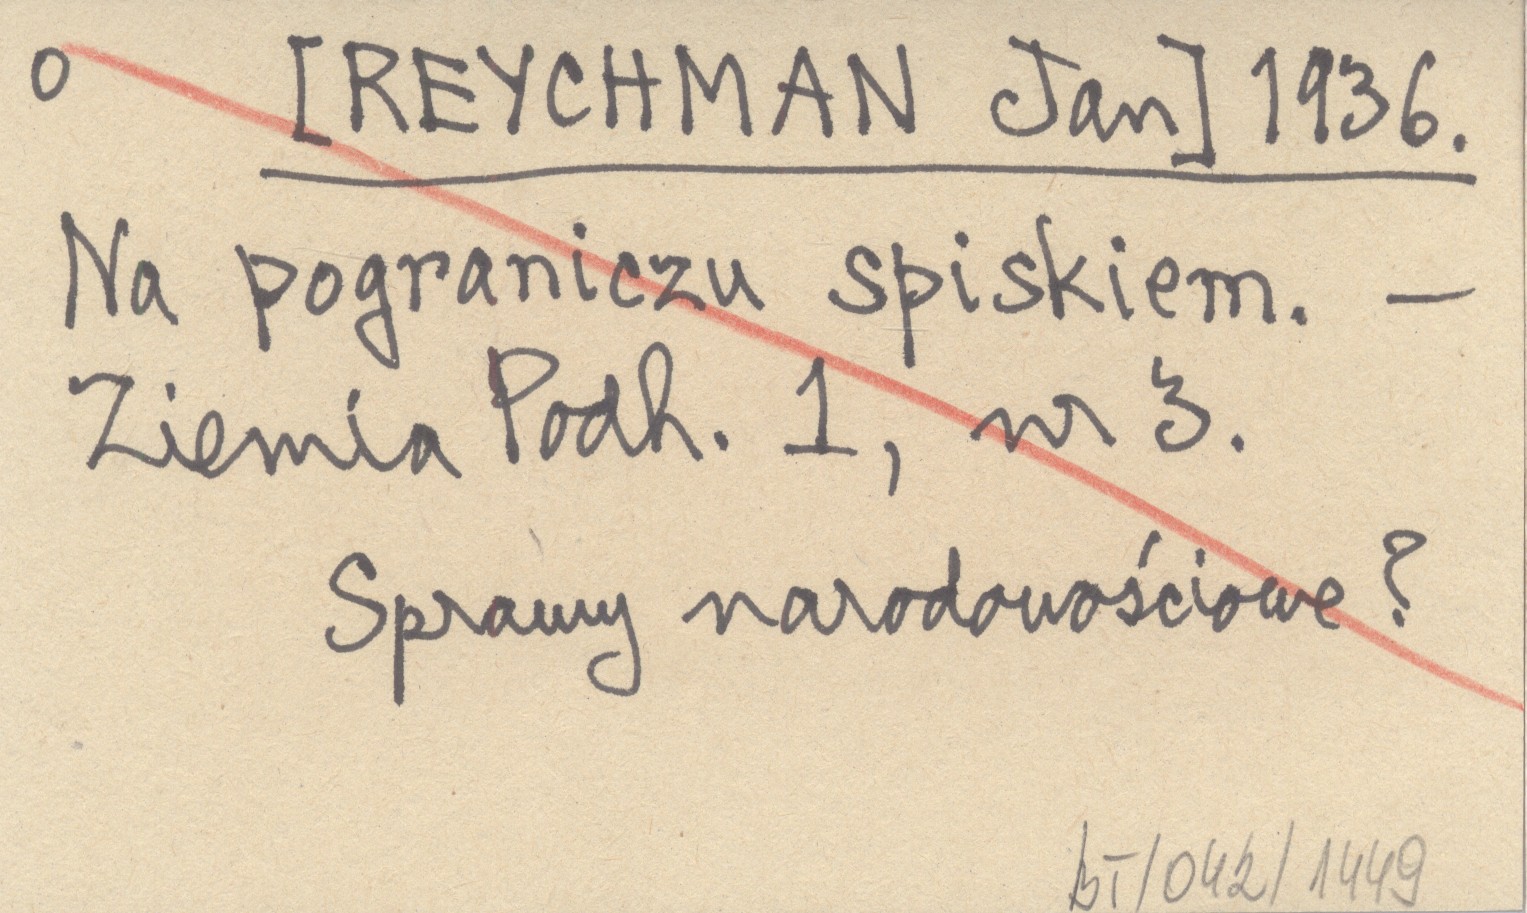 o [REYCHMAN Jan] 1936.
Na pograniczu spiskiem. —
Ziemia Podh. 1, nr 3.
Sprawy narodowościowe?
BT/042/1449